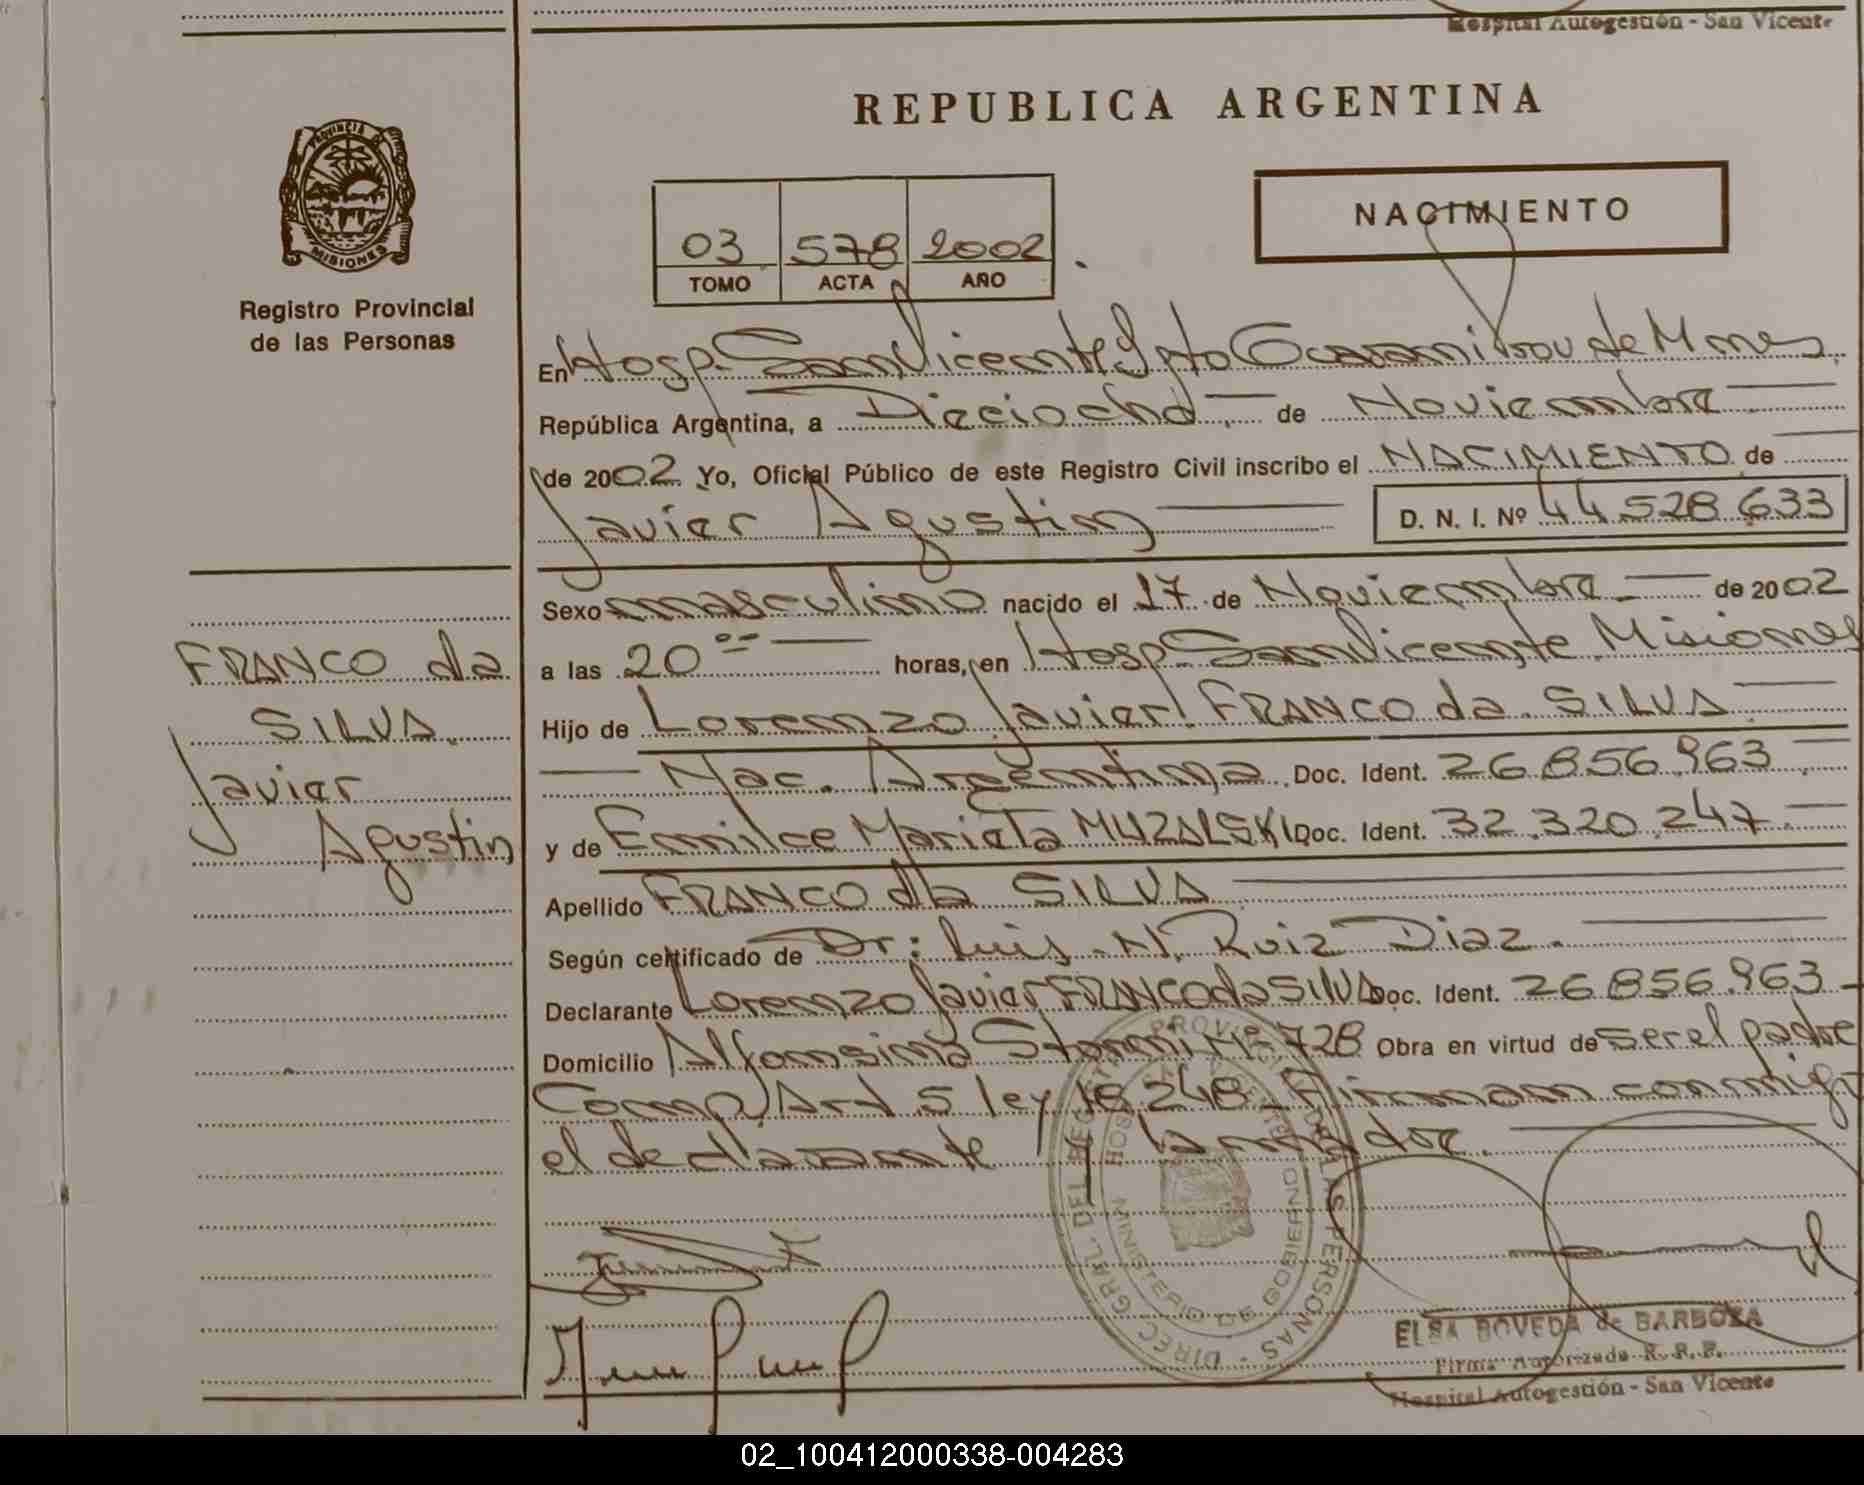 Hospital Autogestión - San Vicente
REPUBLICA ARGENTINA
PROVINCIA DE
MISIONES
Registro Provincial
de las Personas
03 578 2002
TOMO ACTA AÑO
NACIMIENTO
En Hosp. San Vicente Dpto Guarani Prov de Mnes.
República Argentina, a Dieciocho de Noviembre
de 2002 Yo, Oficial Público de este Registro Civil inscribo el NACIMIENTO de
Javier Agustin D. N. I. Nº 44.528.633
Sexo masculino nacido el 17 de Noviembre de 2002
a las 20 ºº horas, en Hosp San Vicente Misiones
Hijo de Lorenzo Javier FRANCO da SILVA
Nac. Argentina Doc. Ident. 26.856.963
y de Emilce Mariela MUZALSKI Doc. Ident. 32.320.247
Apellido FRANCO da SILVA
Según certificado de Dr: Luis N. Ruiz Diaz.
Declarante Lorenzo Javier FRANCO da SILVA Doc. Ident. 26.856.963
Domicilio Alfonsina Storni Nº 728 Obra en virtud de ser el padre
Comp Art 5 ley 18.248 - Firman conmigo
el declarante y la madre.
FRANCO da
SILVA
Javier
Agustin
DIREC. GRAL. DEL REG. PROVINCIAL DE LAS PERSONAS
MINISTERIO DE GOBIERNO
ELSA BOVEDA de BARBOZA
Firma Autorizada R. P. P.
Hospital Autogestión - San Vicente
02_100412000338-004283